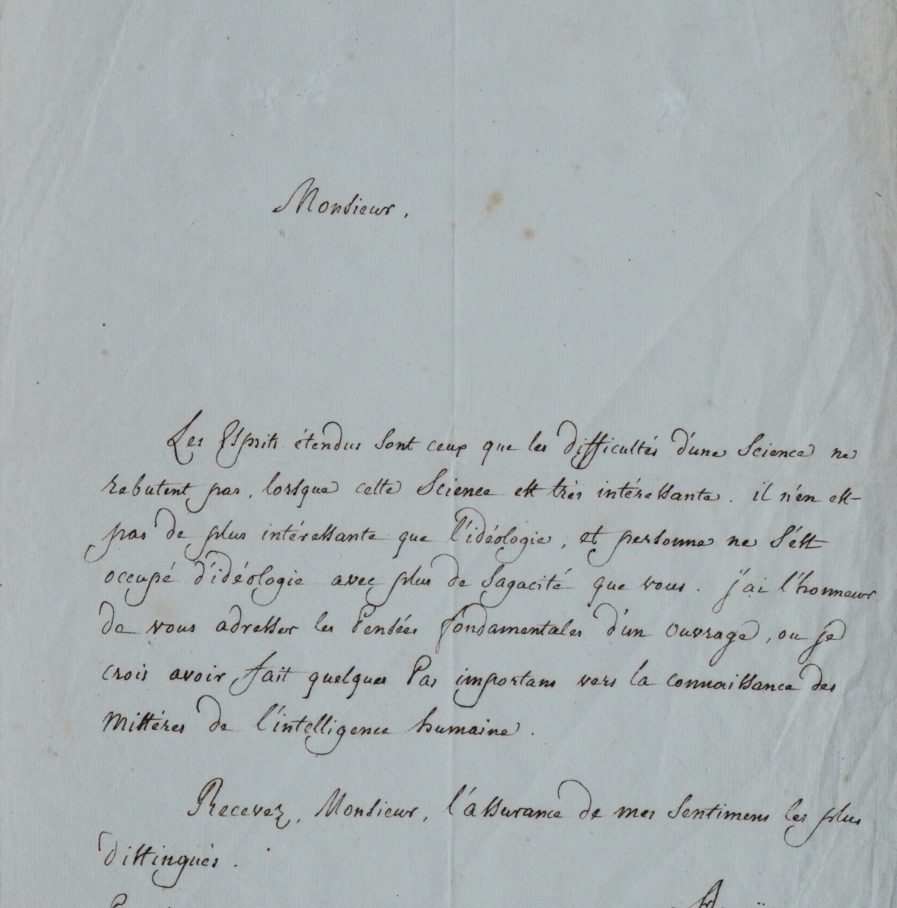 Monsieur,
Les Esprits étendus sont ceux que les difficultés d'une Science ne
rebutent pas, lorsque cette Science est très intéressante. il n'en est
pas de plus intéressante que l'idéologie, et personne ne s'est
occupé d'idéologie avec plus de sagacité que vous. j'ai l'honneur
de vous adresser les Pensées fondamentales d'un ouvrage, ou je
crois avoir fait quelques Pas importans vers la connaissance des
Mistéres de l'intelligence humaine.
Recevez, Monsieur, l'assurance de mes sentimens les plus
distingués.